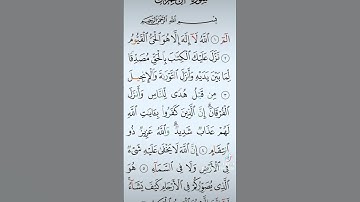 بِسۡمِ ٱللَّهِ ٱلرَّحۡمَٰنِ ٱلرَّحِيمِ
الٓمٓ ١ ٱللَّهُ لَآ إِلَٰهَ إِلَّا هُوَ ٱلۡحَيُّ ٱلۡقَيُّومُ
٢ نَزَّلَ عَلَيۡكَ ٱلۡكِتَٰبَ بِٱلۡحَقِّ مُصَدِّقٗا
لِّمَا بَيۡنَ يَدَيۡهِ وَأَنزَلَ ٱلتَّوۡرَىٰةَ وَٱلۡإِنجِيلَ
٣ مِن قَبۡلُ هُدٗى لِّلنَّاسِ وَأَنزَلَ
ٱلۡفُرۡقَانَۗ إِنَّ ٱلَّذِينَ كَفَرُواْ بِـَٔايَٰتِ ٱللَّهِ
لَهُمۡ عَذَابٞ شَدِيدٞۗ وَٱللَّهُ عَزِيزٞ ذُو
ٱنتِقَامٍ ٤ إِنَّ ٱللَّهَ لَا يَخۡفَىٰ عَلَيۡهِ شَيۡءٞ
فِي ٱلۡأَرۡضِ وَلَا فِي ٱلسَّمَآءِ ٥ هُوَ
ٱلَّذِي يُصَوِّرُكُمۡ فِي ٱلۡأَرۡحَامِ كَيۡفَ يَشَآءُۚ